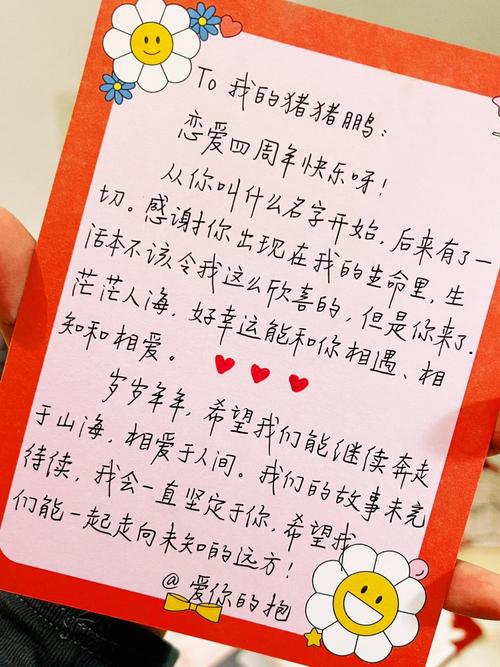 To 我的猪猪鹏:
恋爱四周年快乐呀!
从你叫什么名字开始,后来有了一
切。感谢你出现在我的生命里,生
活本不该令我这么欣喜的,但是你来了.
茫茫人海,好幸运能和你相遇、相
知和相爱。
岁岁年年,希望我们能继续奔走
于山海,相爱于人间。我们的故事未完
待续,我会一直坚定于你,希望我
们能一起走向未知的远方!
@爱你的抱